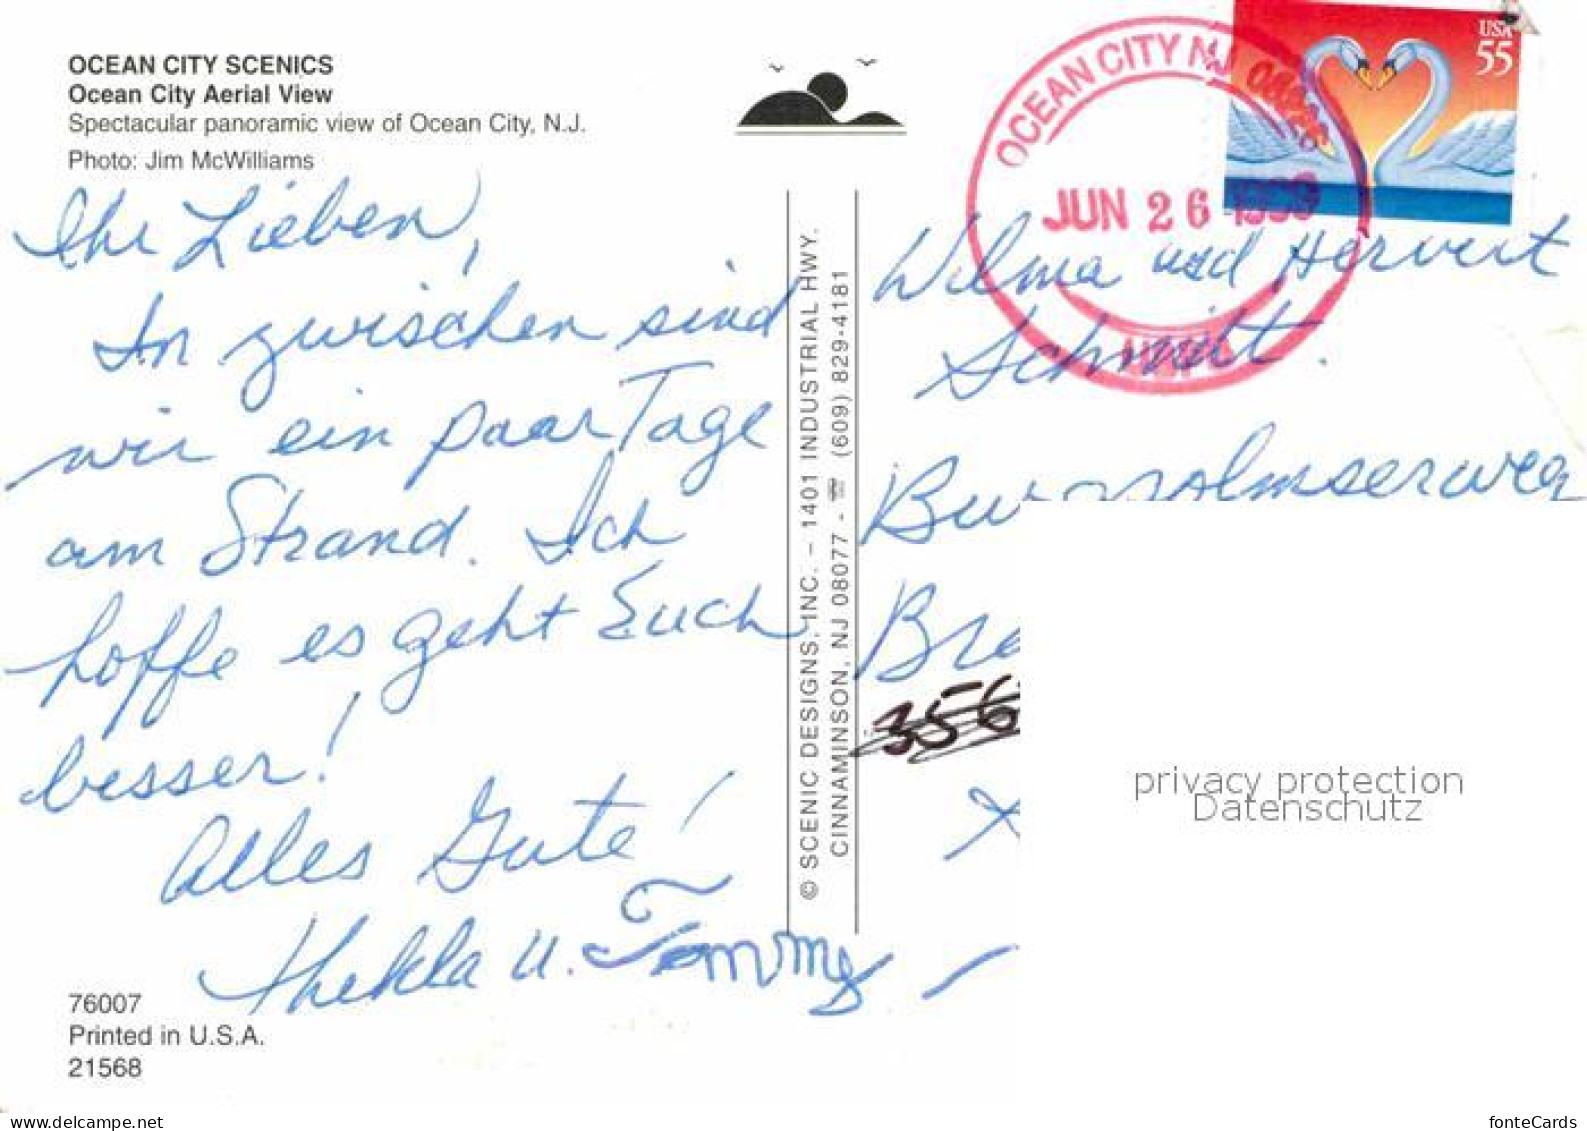 OCEAN CITY SCENICS
Ocean City Aerial View
Spectacular panoramic view of Ocean City, N.J.
Photo: Jim McWilliams
Ihr Lieben,
In zwischen sind
wir ein paar Tage
am Strand. Ich
hoffe es geht Euch
besser!
Alles Gute!
Thekla u. Tommy
76007
Printed in U.S.A.
21568
© SCENIC DESIGNS, INC. – 1401 INDUSTRIAL HWY.
CINNAMINSON, NJ 08077 - ☏ (609) 829-4181
OCEAN CITY NJ
JUN 26 1999
USPS
USA
55
Wilma und Herbert
Schmidt.
356
privacy protection
Datenschutz
www.delcampe.net
fonteCards